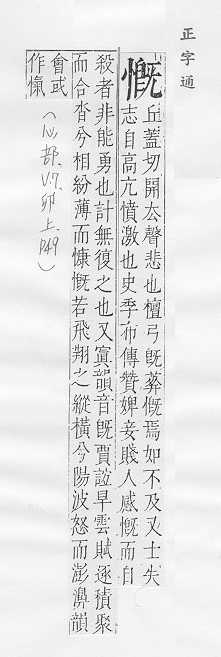 正字通
慨 丘蓋切開去聲悲也檀弓既葬慨焉如不及又士失
志自高亢憤激也史季布傳贊婢妾賤人感慨而自
殺者非能勇也計無復之也又寘韻音既賈誼旱雲賦逐積聚
而合沓兮相紛薄而慷慨若飛翔之縱橫兮陽波怒而澎濞韻
會或
作愾
(心部, V.7, 卯上, P49)